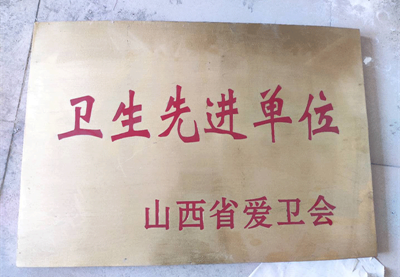 卫生先进单位
山西省爱卫会